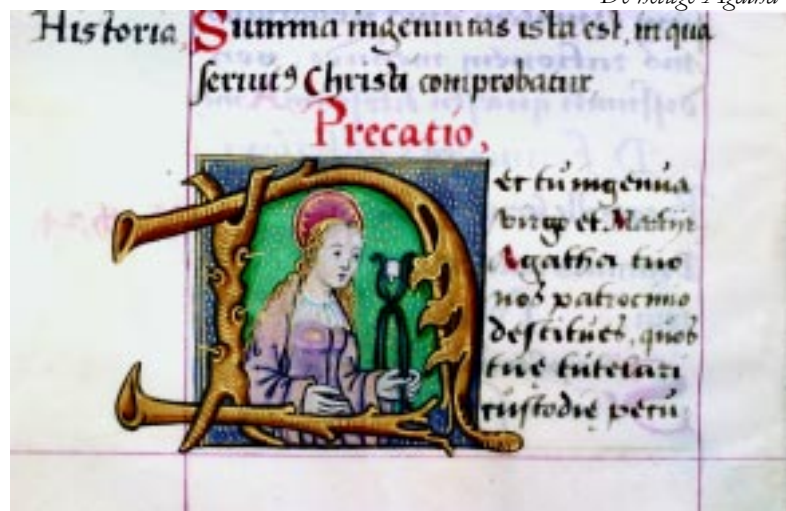 De heilige Agatha
Historia, Summa ingenuitas ista est, in qua
seruitꝰ Christi comprobatur,
Precatio,
et tu ingenua
virgo et Martir
Agatha tuo
nos patrocinio
destitues, quos
tuę tutelari
custodię petu